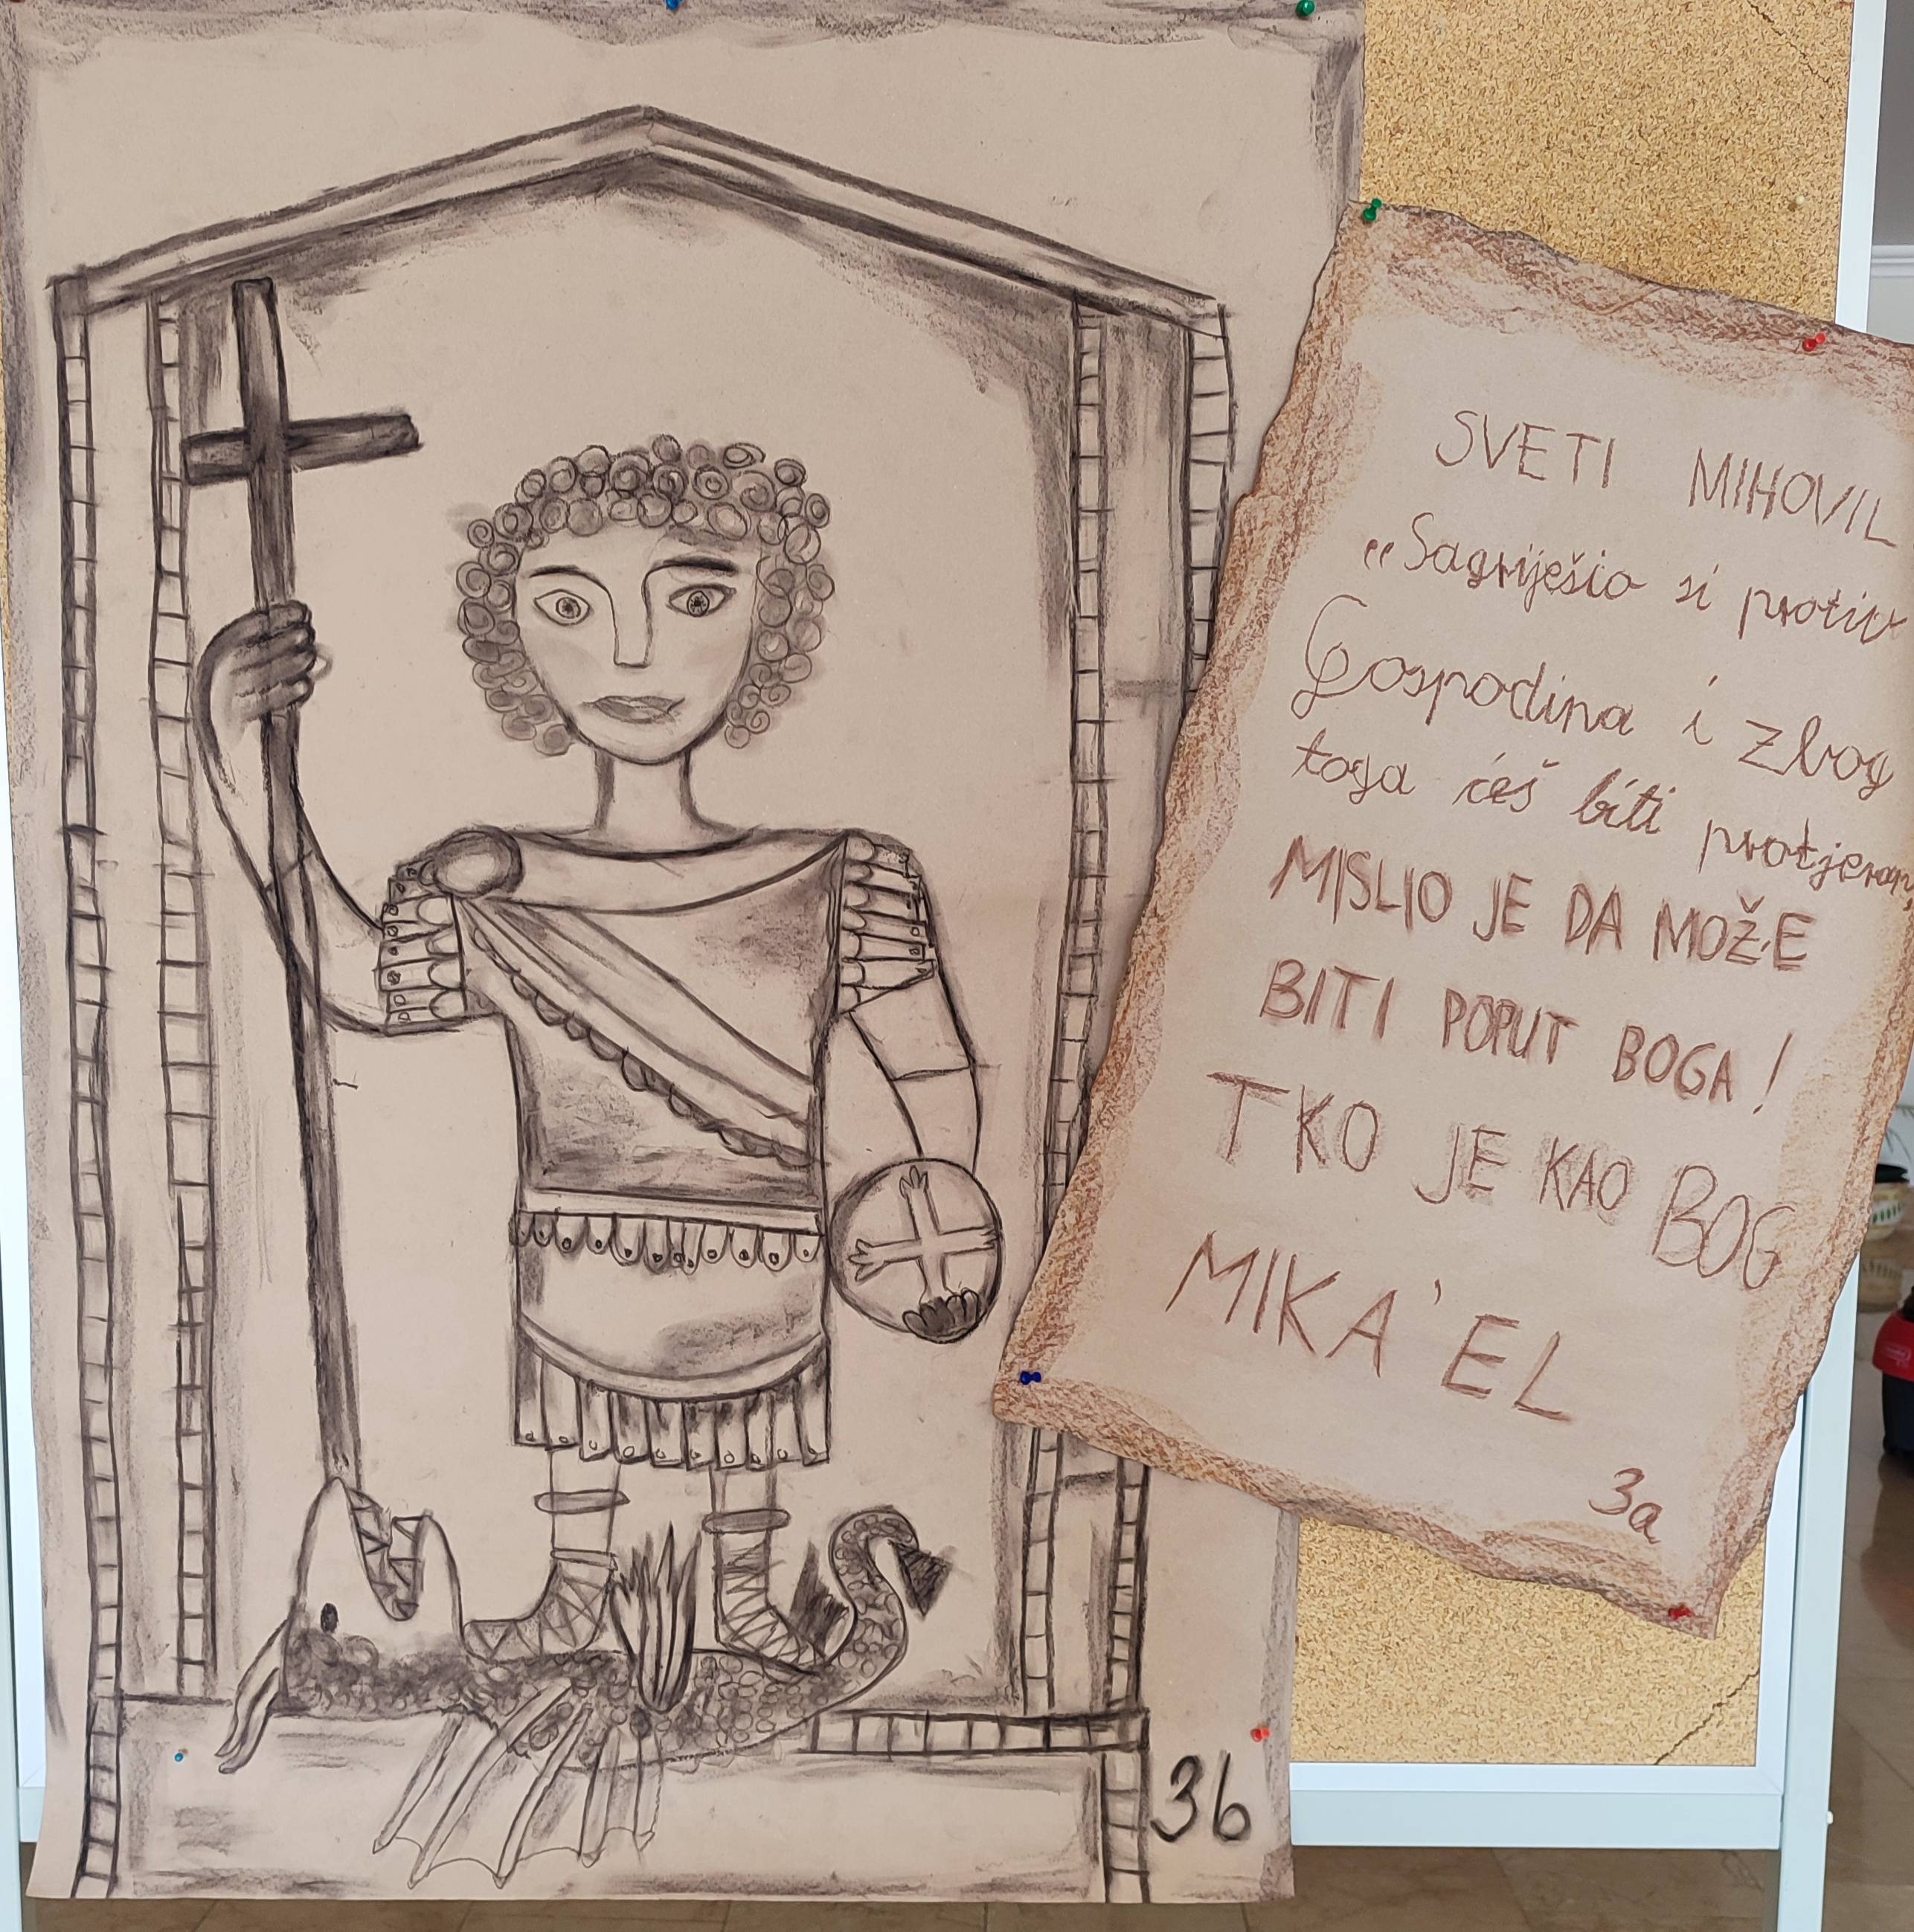 SVETI MIHOVIL
"Sagriješio si protiv
Gospodina i zbog
toga ćeš biti protjeran,
MISLIO JE DA MOŽE
BITI POPUT BOGA!
TKO JE KAO BOG
MIKA'EL
3a
3b